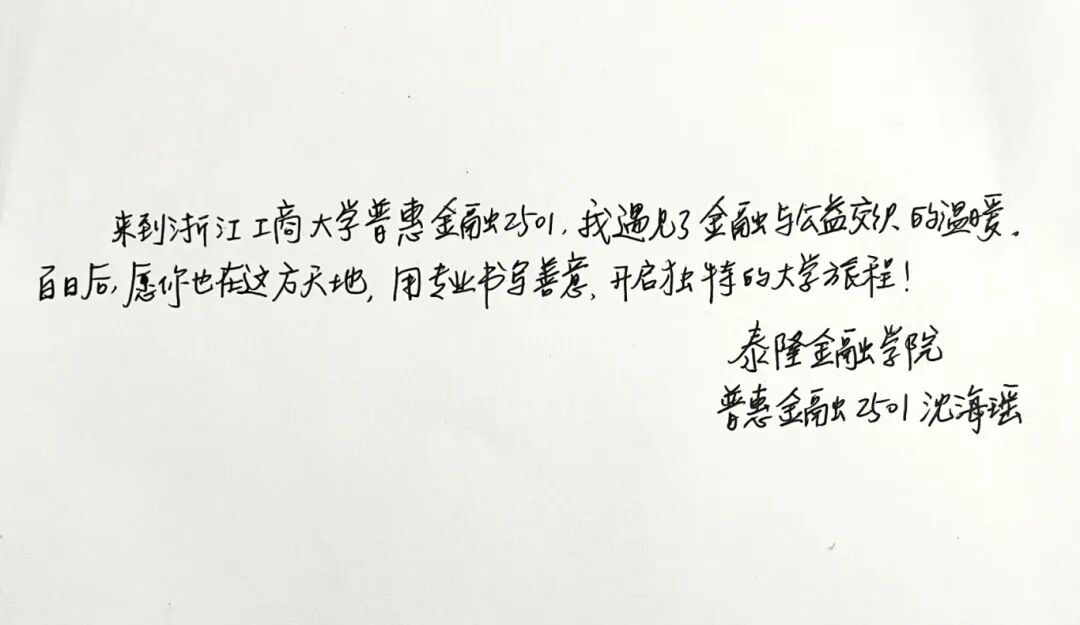 来到浙江工商大学普惠金融2501，我遇见了金融与公益交织的温暖。
百日后，愿你也在这方天地，用专业书写善意，开启独特的大学旅程！
泰隆金融学院
普惠金融2501 沈海瑶